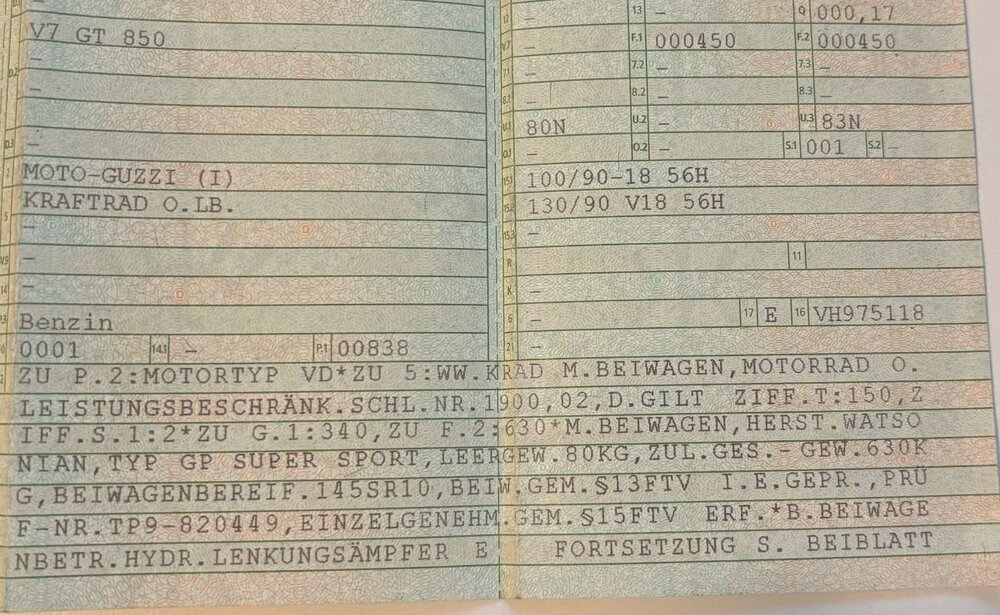 12 – 13 – Q 000,17
V7 GT 850 V.7 – F.1 000450 F.2 000450
D.2 – – 7.2 – 7.3 –
– 8.1 – 8.2 – 8.3 –
– U.1 80N U.2 – U.3 83N
D.3 – O.1 – O.2 – S.1 001 S.2 –
2 MOTO-GUZZI (I) 15.1 100/90-18 56H
5 KRAFTRAD O.LB. 15.2 130/90 V18 56H
– 15.3 –
V.9 – R 11
14 – K –
P.3 Benzin 6 – 17 E 16 VH975118
10 0001 14.1 – P.1 00838 21 –
22 ZU P.2:MOTORTYP VD*ZU 5:WW.KRAD M.BEIWAGEN,MOTORRAD O.
LEISTUNGSBESCHRÄNK.SCHL.NR.1900,02,D.GILT ZIFF.T:150,Z
IFF.S.1:2*ZU G.1:340,ZU F.2:630*M.BEIWAGEN,HERST.WATSO
NIAN,TYP GP SUPER SPORT,LEERGEW.80KG,ZUL.GES.- GEW.630K
G,BEIWAGENBEREIF.145SR10,BEIW.GEM.§13FTV I.E.GEPR.,PRÜ
F-NR.TP9-820449,EINZELGENEHM.GEM.§15FTV ERF.*B.BEIWAGE
NBETR.HYDR.LENKUNGSÄMPFER E FORTSETZUNG S. BEIBLATT